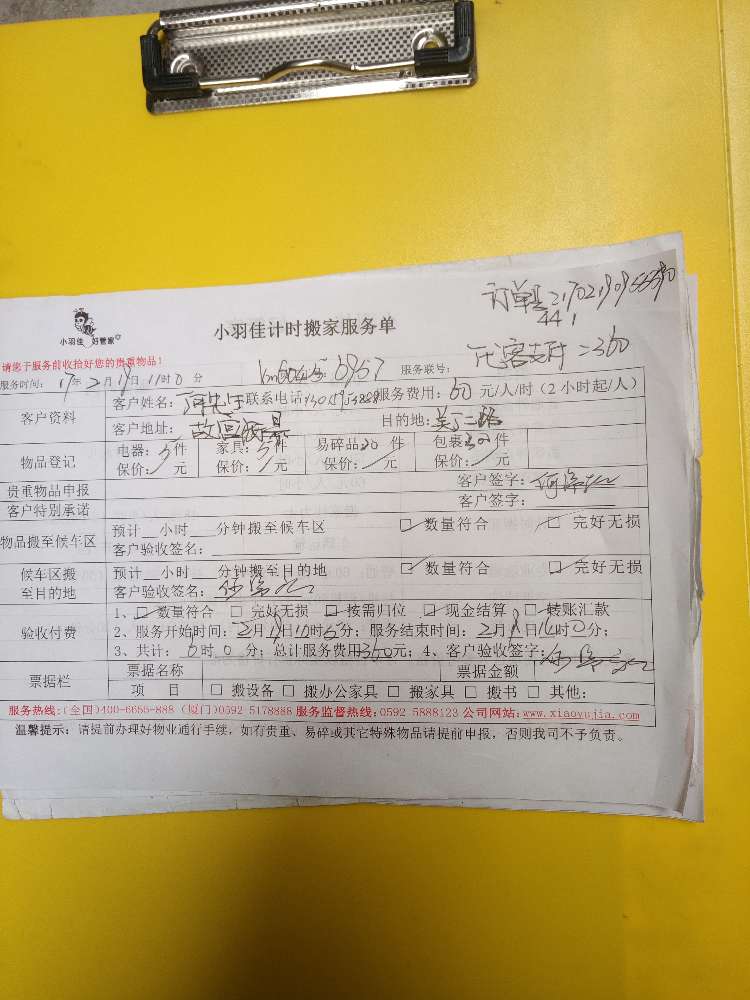 订单
441
小羽佳 好管家
小羽佳计时搬家服务单
代客支付=360
请您于服务前收拾好您的贵重物品!
6957 服务联号:
服务时间: 17年2月19日11时0分
客户资料 客户姓名: 联系电话 服务费用: 60元/人/时(2小时起/人)
客户地址: 目的地:
物品登记 电器:5件 家具:5件 易碎品20件 包裹30件
保价: 元 保价: 元 保价: 元 保价: 元
贵重物品申报 客户签字:
客户特别承诺 客户签字:
物品搬至候车区 预计__小时__分钟搬至候车区 ☑ 数量符合 ☑ 完好无损
客户验收签名:
候车区搬至目的地 预计__小时__分钟搬至目的地 ☑ 数量符合 ☑ 完好无损
客户验收签名:
验收付费 1、☑ 数量符合 □ 完好无损 □ 按需归位 □ 现金结算 □ 转账汇款
2、服务开始时间:2月 日10时 分; 服务结束时间: 2月 日 时0分;
3、共计:6时0分; 总计服务费用360元; 4、客户验收签字:
票据栏 票据名称 票据金额
项 目 □ 搬设备 □ 搬办公家具 □ 搬家具 □ 搬书 □ 其他:
服务热线:(全国)400-6656-888 (厦门)0592 5178888 服务监督热线:0592 5888123 公司网站:www.xiaoyujia.com
温馨提示: 请提前办理好物业通行手续, 如有贵重、易碎或其它特殊物品请提前申报, 否则我司不予负责。